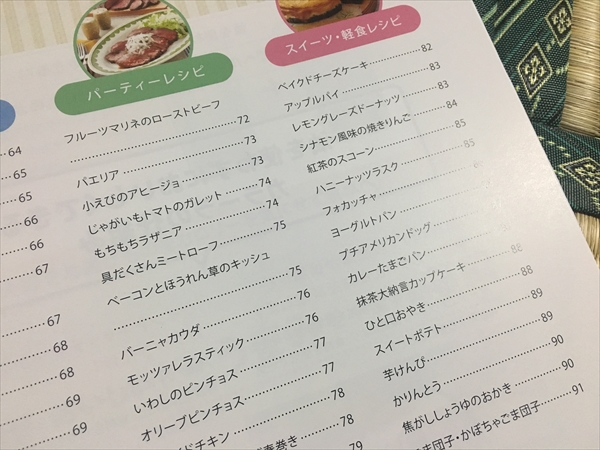 64
65
65
66
66
67
67
68
68
69
69
パーティーレシピ
フルーツマリネのローストビーフ
……………………………72
パエリア……………………73
小えびのアヒージョ…………73
じゃがいもトマトのガレット……74
もちもちラザニア……………74
具だくさんミートローフ………75
ベーコンとほうれん草のキッシュ
……………………………75
バーニャカウダ………………76
モッツァレラスティック………76
いわしのピンチョス…………77
オリーブピンチョス…………77
ドチキン……………………78
巻き…………………………78
79
スイーツ・軽食レシピ
ベイクドチーズケーキ………82
アップルパイ…………………83
レモングレーズドーナッツ……83
シナモン風味の焼きりんご……84
紅茶のスコーン………………85
ハニーナッツラスク…………85
フォカッチャ…………………
ヨーグルトパン………………
プチアメリカンドッグ…………
カレーたまごパン……………88
抹茶大納言カップケーキ……88
ひと口おやき…………………89
スイートポテト………………89
芋けんぴ……………………90
かりんとう……………………90
焦がししょうゆのおかき………91
ごま団子・かぼちゃごま団子